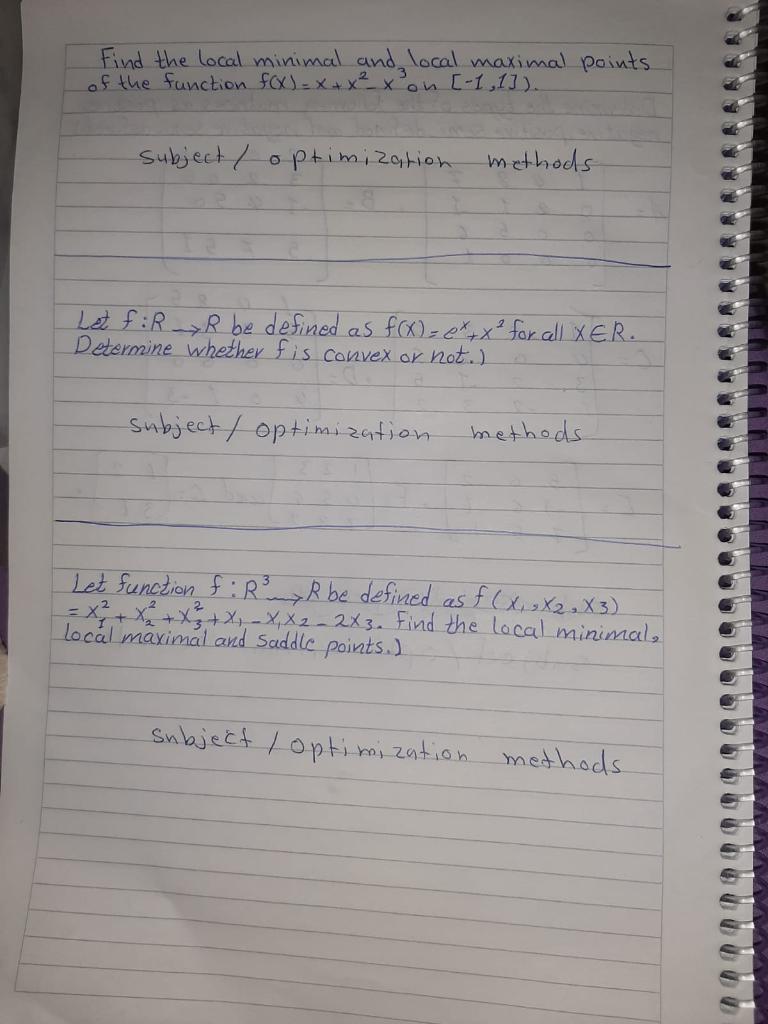 Find the local minimal and local maximal points
of the function f(x) = x + x² - x³ on [-1,1]).
subject / optimization methods
Let f : R → R be defined as f(x) = eˣ + x² for all x ∈ R.
Determine whether f is convex or not.)
subject / optimization methods
Let function f : R³ → R be defined as f(x₁, x₂, x3)
= x₁² + x₂² + x₃² + x₁ - x₁x₂ - 2x3. Find the local minimal,
local maximal and saddle points.)
subject / optimization methods